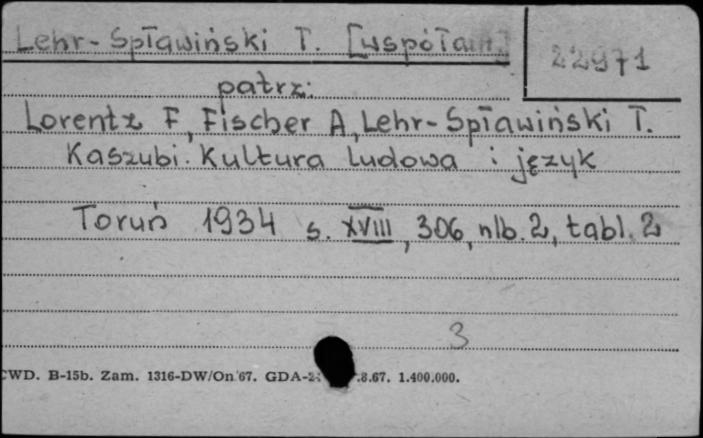 Lehr-Spławiński T. [współaut.]
22971
patrz:
Lorentz F, Fischer A, Lehr-Spławiński T.
Kaszubi. Kultura ludowa i język
Toruń 1934 s. XVIII, 306, nlb. 2, tabl. 2
3
CWD. B-15b. Zam. 1316-DW/On/67. GDA-2 .8.67. 1.400.000.